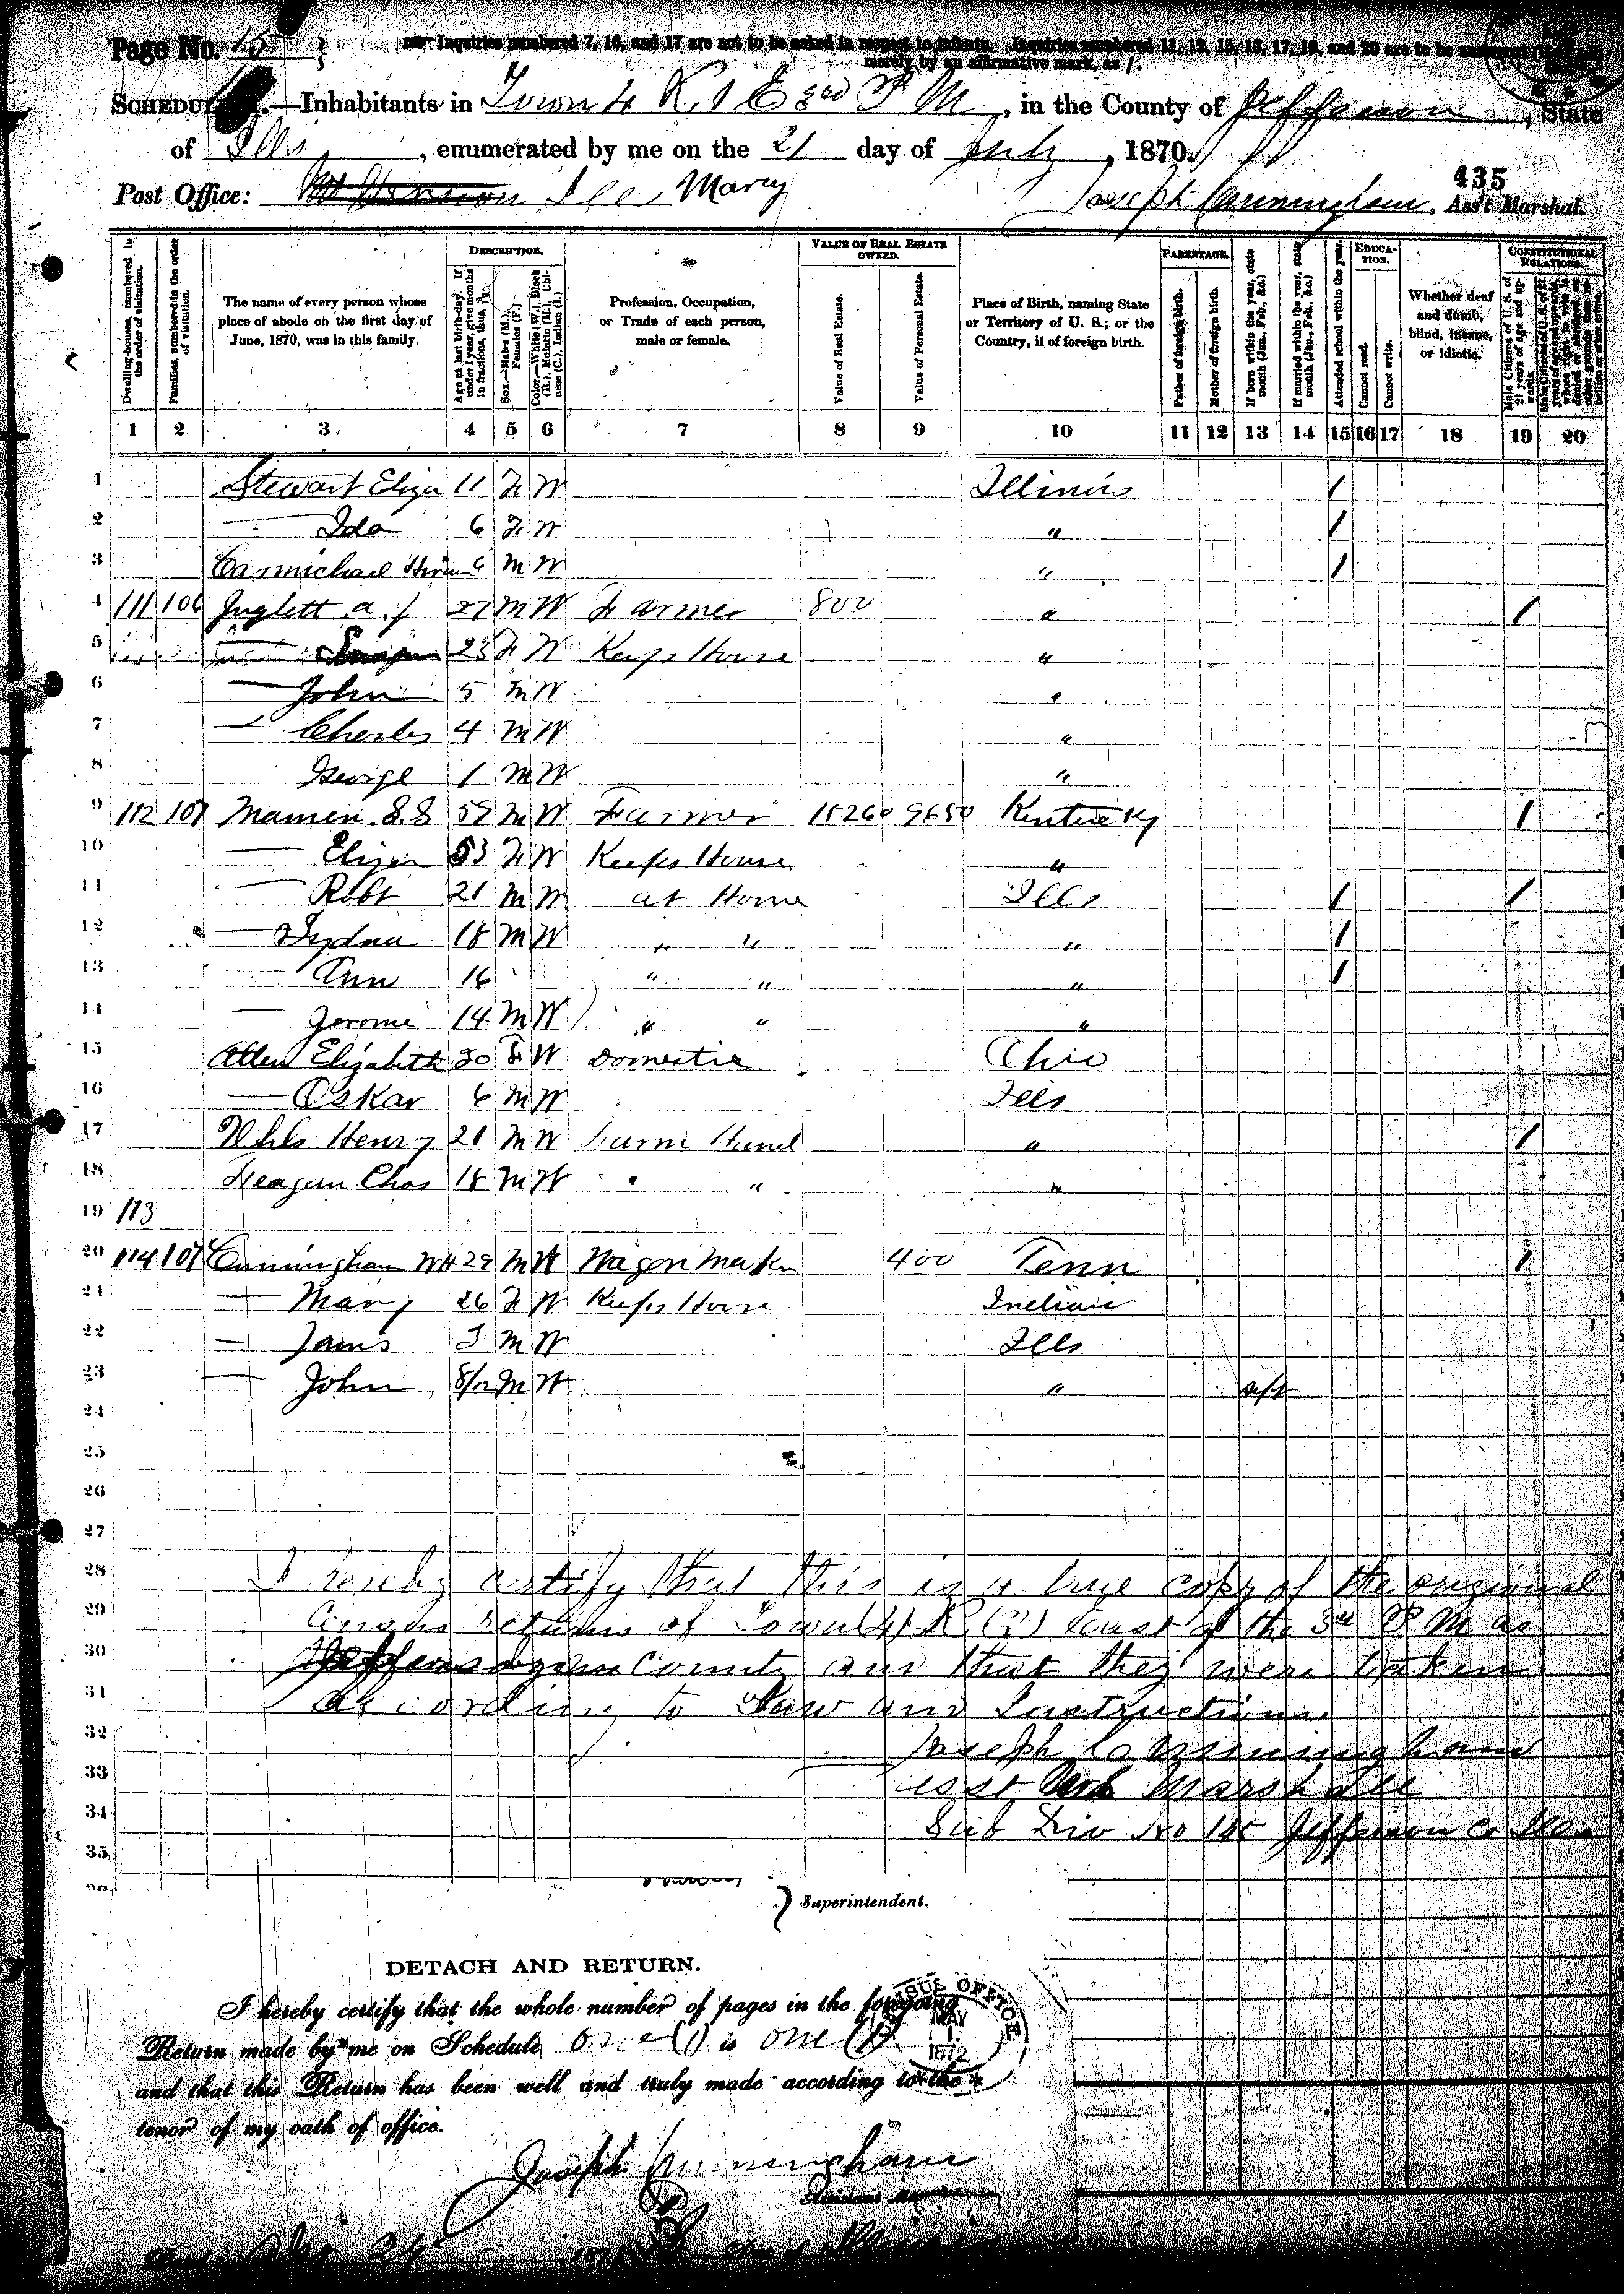 Page No. 15
Inquiries numbered 7, 16, and 17 are not to be asked in respect to infants. Inquiries numbered 11, 12, 15, 16, 17, 19, and 20 are to be answered
merely by an affirmative mark, as /.
—Inhabitants in Town 4 R 1 E 3rd P M, in the County of Jefferson, State
of Ills, enumerated by me on the 21 day of July, 1870.
435
Post Office: Mt Vernon Ills Marcy Joseph Cunningham, Ass't Marshal.
Dwelling-houses, numbered in the order of visitation.
Families numbered in the order of visitation.
The name of every person whose place of abode on the first day of June, 1870, was in this family.
DESCRIPTION.
Age at last birth-day. If under 1 year, give months in fractions, thus,
Sex.—Males (M.), Females (F.)
Color.—White (W.), Black (B.), Mulatto (M.), Chinese (C.), Indian (I.)
Profession, Occupation, or Trade of each person, male or female.
VALUE OF REAL ESTATE OWNED.
Value of Real Estate.
Value of Personal Estate.
Place of Birth, naming State or Territory of U. S.; or the Country, if of foreign birth.
PARENTAGE.
Father of foreign birth.
Mother of foreign birth.
If born within the year, state month (Jan., Feb., &c.)
If married within the year, state month (Jan., Feb., &c.)
Attended school within the year.
EDUCATION.
Cannot read.
Cannot write.
Whether deaf and dumb, blind, insane, or idiotic.
CONSTITUTIONAL RELATIONS.
Male Citizens of U. S. of 21 years of age and upwards.
1 2 3 4 5 6 7 8 9 10 11 12 13 14 15 16 17 18 19 20
1 Stewart Eliza 11 F W Illinois /
2 — Ida 6 F W " /
3 Carmichael 6 M W " /
4 111 106 A J 27 M W Farmer 800 " /
5 23 F W Keeps House "
6 — John 5 M W "
7 — Charles 4 M W "
8 George 1 M W "
9 112 107 S.S 59 M W Farmer 15260 9650 Kentucky /
10 — Eliza 53 F W Keeps House "
11 — Robt 21 M W at Home Ills / /
12 — Sydna 18 M W " " " /
13 — Ann 16 " " " /
14 — Jerome 14 M W " " "
15 Allen Elizabeth 30 F W Domestic Ohio
16 — Oskar 6 M W Ills
17 Henry 21 M W Farm Hand " /
18 Feagan Chas 18 M W " " "
19 113
20 114 107 Cunningham WH 29 M W Wagon Maker 400 Tenn /
21 — Mary 26 F W Keeps House Indian
22 — James 3 M W Ills
23 — John 8/12 M W "
24
25
26
27
28 I hereby certify that this is a true copy of the original
29 Census returns of Town (4) R (2) East of the 3rd P M as
30 County and that they were taken
31 according to Law and Instructions.
32 Joseph Cunningham
33 asst Marshall
34 Sub Div No 145 Jefferson Co Ills
35
Superintendent.
DETACH AND RETURN.
I hereby certify that the whole number of pages in the foregoing
Return made by me on Schedule one (1) is one (1)
and that this Return has been well and truly made according to the
tenor of my oath of office.
CENSUS OFFICE
MAY
1
1872
Joseph Cunningham